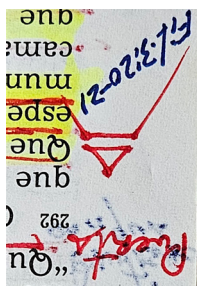 Puerta
“Qu
292
que
Que
espe
mun
cama
que
Fil.3:20-21